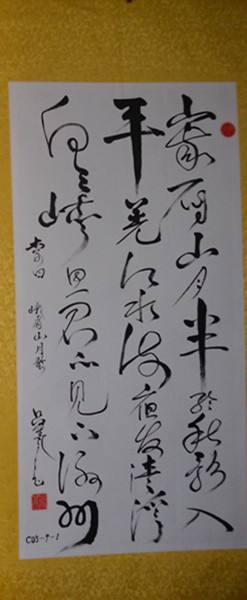 峩眉山月半輪秋影入
平羌江水流夜發清溪
向三峽思君不見下渝州
李白 峨眉山月歌